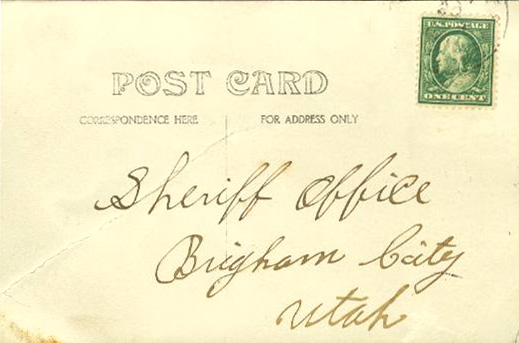 U.S. POSTAGE
ONE CENT
POST CARD
CORRESPONDENCE HERE
FOR ADDRESS ONLY
Sheriff Office
Brigham City
Utah